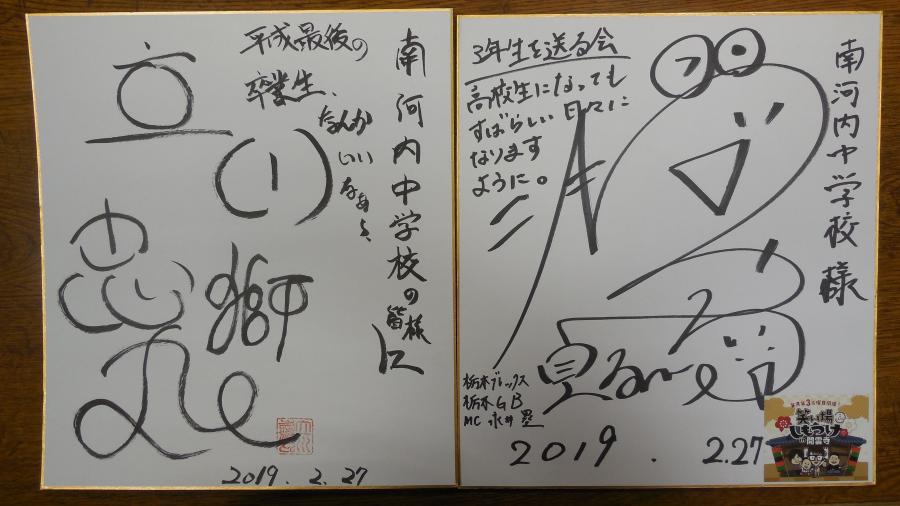 南河内中学校の皆様に
平成最後の
卒業生、
なんか
いい
なぁ〜、
立川
獅
志
丸
2019.2.27
南河内中学校様
3年生を送る会
高校生になっても
すばらしい日々に
なります
ように。
栃木ブレックス
栃木GB
MC 永井塁
2019.2.27
笑い場
しもつけ
in 開雲寺